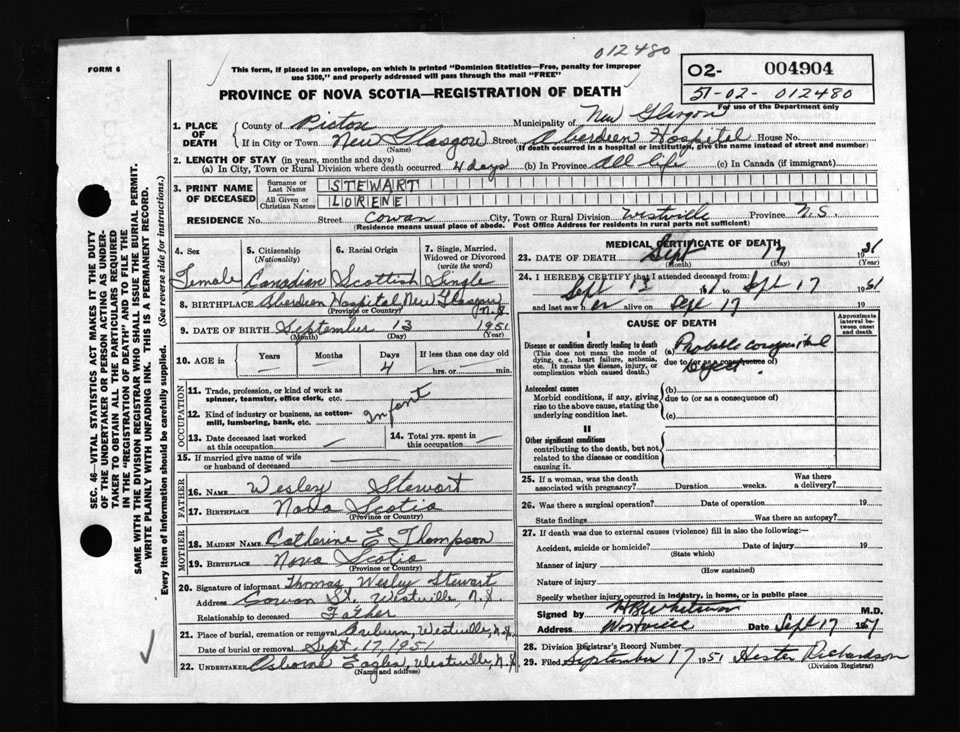 012480
FORM 6
This form, if placed in an envelope, on which is printed "Dominion Statistics—Free, penalty for improper
use $300," and properly addressed will pass through the mail "FREE"
02- 004904
51-02-012480
For use of the Department only
PROVINCE OF NOVA SCOTIA—REGISTRATION OF DEATH
1. PLACE OF DEATH
County of Pictou Municipality of New Glasgow
If in City or Town New Glasgow Street Aberdeen Hospital House No.
(Name) (If death occurred in a hospital or institution, give the name instead of street and number)
2. LENGTH OF STAY (in years, months and days)
(a) In City, Town or Rural Division where death occurred 4 days (b) In Province All life (c) In Canada (if immigrant)
3. PRINT NAME OF DECEASED
Surname or Last Name STEWART
All Given or Christian Names LORENE
RESIDENCE No. Street Cowan City, Town or Rural Division Westville Province N.S.
(Residence means usual place of abode. Post Office Address for residents in rural parts not sufficient)
4. Sex
Female
5. Citizenship (Nationality)
Canadian
6. Racial Origin
Scottish
7. Single, Married, Widowed or Divorced (write the word)
Single
8. BIRTHPLACE Aberdeen Hospital, New Glasgow N.S.
(Province or Country)
9. DATE OF BIRTH September 13 1951
(Month) (Day) (Year)
10. AGE in Years Months Days If less than one day old
— — 4 — hrs. or — min.
OCCUPATION
11. Trade, profession, or kind of work as
spinner, teamster, office clerk, etc.
12. Kind of industry or business, as cotton-
mill, lumbering, bank, etc.
Infant
13. Date deceased last worked
at this occupation —
14. Total yrs. spent in
this occupation —
15. If married give name of wife
or husband of deceased —
FATHER
16. NAME Wesley Stewart
17. BIRTHPLACE Nova Scotia
(Province or Country)
MOTHER
18. MAIDEN NAME Catherine E Thompson
19. BIRTHPLACE Nova Scotia
(Province or Country)
20. Signature of informant Thomas Wesley Stewart
Address Cowan St. Westville, N.S.
Relationship to deceased Father
21. Place of burial, cremation or removal Auburn, Westville, N.S.
Date of burial or removal Sept. 17, 1951
22. UNDERTAKER Osborne Eagles, Westville, N.S.
(Name and address)
MEDICAL CERTIFICATE OF DEATH
23. DATE OF DEATH Sept 17 1951
(Month) (Day) (Year)
24. I HEREBY CERTIFY that I attended deceased from
Sept 13 51 to Sept 17 1951
and last saw h er alive on Sept 17
CAUSE OF DEATH
Approximate interval between onset and death
I
Disease or condition directly leading to death
(This does not mean the mode of dying, e.g., heart failure, asthenia, etc. It means the disease, injury, or complication which caused death.)
(a) Probable congenital
due to (or as a consequence of)
Antecedent causes
Morbid conditions, if any, giving rise to the above cause, stating the underlying condition last.
(b)
due to (or as a consequence of)
(c)
II
Other significant conditions
contributing to the death, but not related to the disease or condition causing it.
25. If a woman, was the death
associated with pregnancy? Duration weeks. Was there a delivery?
26. Was there a surgical operation? Date of operation 19
State findings Was there an autopsy?
27. If death was due to external causes (violence) fill in also the following:—
Accident, suicide or homicide? Date of injury 19
(State which)
Manner of injury
(How sustained)
Nature of injury
Specify whether injury occurred in industry, in home, or in public place
Signed by H B Whitman M.D.
Address Westville Date Sept 17 1951
28. Division Registrar's Record Number
29. Filed September 17 1951 Hester Richardson
(Division Registrar)
SEC. 46—VITAL STATISTICS ACT MAKES IT THE DUTY
OF THE UNDERTAKER OR PERSON ACTING AS UNDER-
TAKER TO OBTAIN ALL THE PARTICULARS REQUIRED
IN THE "REGISTRATION OF DEATH" AND TO FILE THE
SAME WITH THE DIVISION REGISTRAR WHO SHALL ISSUE THE BURIAL PERMIT.
WRITE PLAINLY WITH UNFADING INK. THIS IS A PERMANENT RECORD.
Every item of information should be carefully supplied. (See reverse side for instructions.)